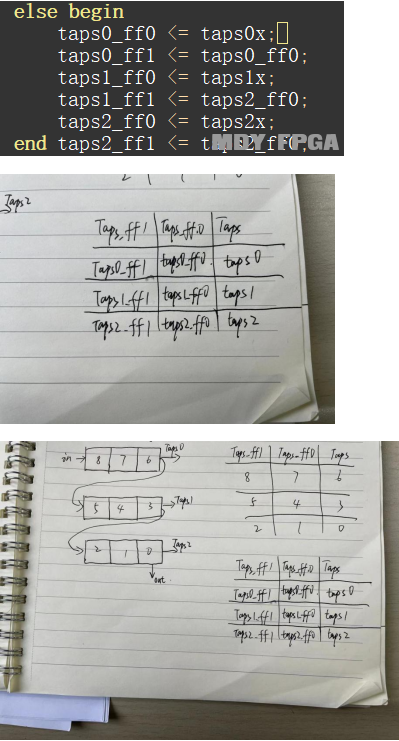 else begin
taps0_ff0 <= taps0x;
taps0_ff1 <= taps0_ff0;
taps1_ff0 <= taps1x;
taps1_ff1 <= taps2_ff0;
taps2_ff0 <= taps2x;
end taps2_ff1 <= taps2_ff0;
MDY FPGA
2 1 0
Taps2
Taps_ff1 Taps_ff0 Taps
Taps0_ff1 taps0_ff0 taps0
Taps1_ff1 taps1_ff0 taps1
Taps2_ff1 taps2_ff0 taps2
in 8 7 6 Taps0
5 4 3 Taps1
2 1 0 Taps2
out
Taps_ff1 Taps_ff0 Taps
8 7 6
5 4 3
2 1 0
Taps_ff1 Taps_ff0 Taps
Taps0_ff1 taps0_ff0 taps0
Taps1_ff1 taps1_ff0 taps1
Taps2_ff1 taps2_ff0 taps2